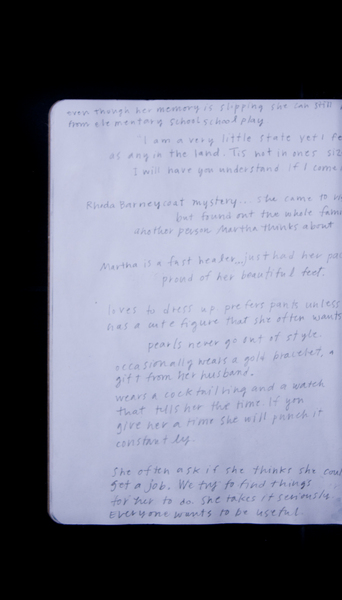 even though her memory is slipping she can still
from elementary school school play
"I am a very little state yet I fe
as any in the land. Tis not in ones siz
I will have you understand if I come
Rhoda Barneycoat mystery.. she came to
but found out the whole fam
another person Martha thinks about
Martha is a fast healer...just had her
proud of her beautiful feet.
loves to dress up prefers pants unless
has a cute figure that she often wants
pearls never go out of style.
occasionally wears a gold bracelet, a
gift from her husband.
wears a cocktail ring and a watch
that tells her the time. If you
give her a time she will punch it
constantly.
She often ask if she thinks she coul
get a job. We try to find things
for her to do. She takes it seriously
Everyone wants to be useful.